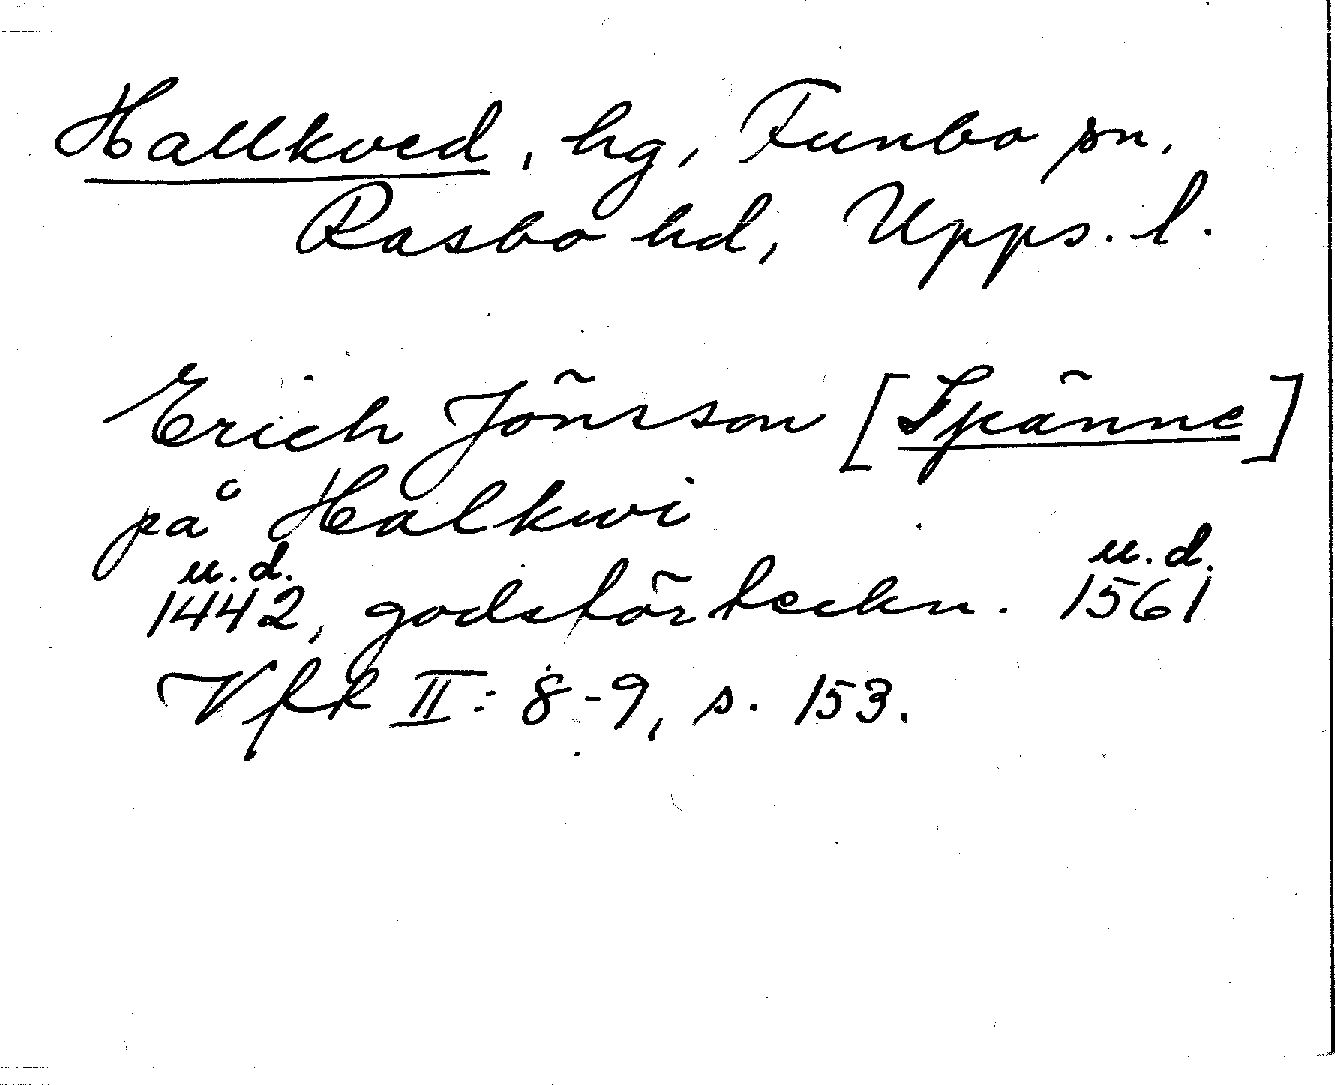 Hallkved, hg, Funbo sn,
Rasbo hd, Upps. l.
Erich Jönsson [Spänne]
på Halkwi
u.d. u.d.
1442, godsförteckn. 1561
Vfrk II: 8-9, s. 153.